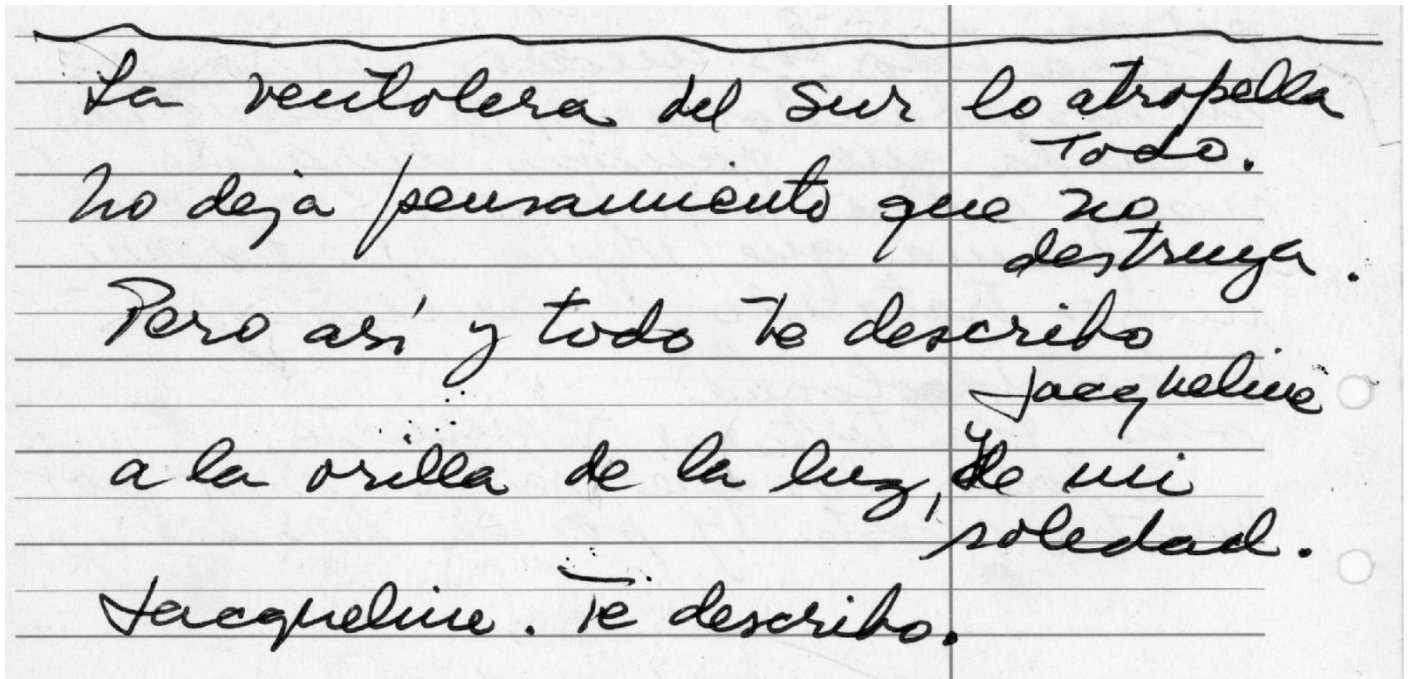 La ventolera del Sur lo atropella
Todo.
no deja pensamiento que no
destruya.
Pero así y todo Te describo
Jacqueline
a la orilla de la luz, de mi
soledad.
Jacqueline. Te describo.